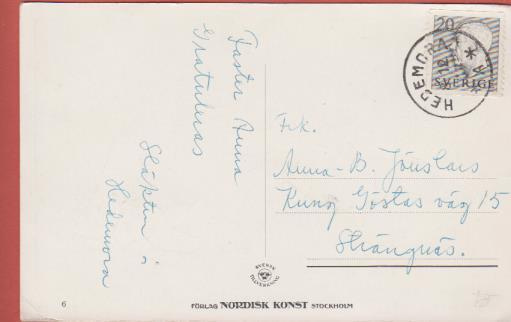 Faster Anna
Gratuleras
Släkten i
Hedemora
20
SVERIGE
HEDEMORA
Frk.
Anna-B. Jönslars
Kung Göstas väg 15
Strängnäs.
SVENSK
TILLVERKNING
6
FÖRLAG NORDISK KONST STOCKHOLM